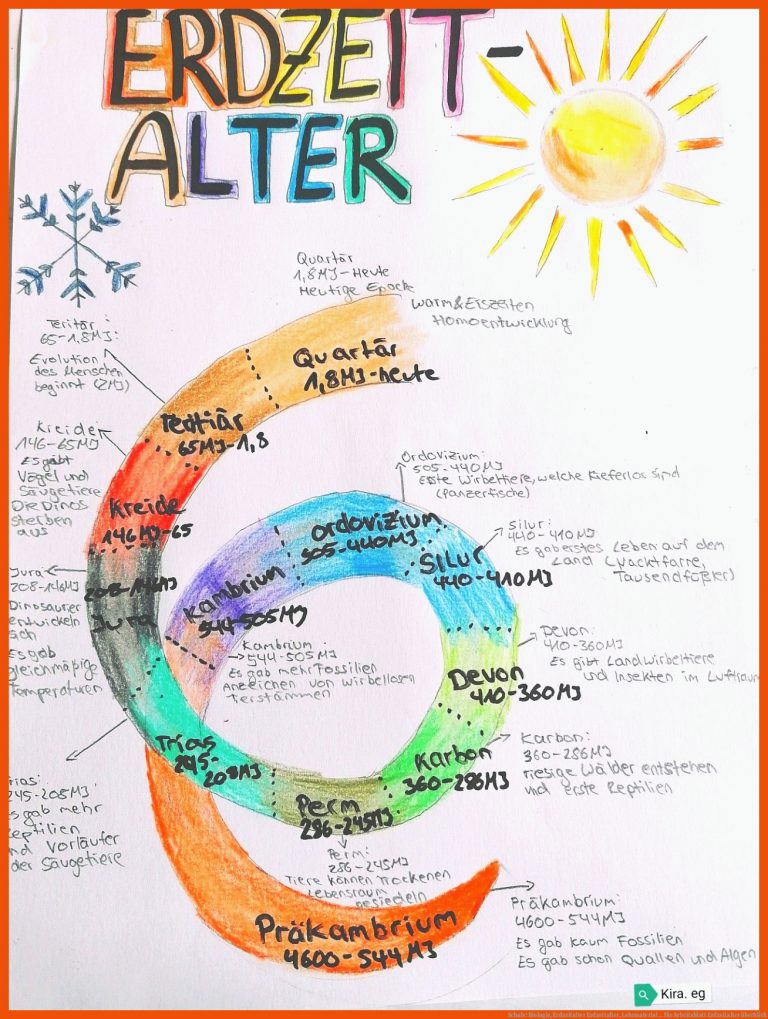 ERDZEIT-
ALTER
Quartär
1,8MJ-Heute
Heutige Epoche
Warm&Eiszeiten
Homoentwicklung
Teritär:
65-1.8MJ:
Evolution
des Menschen
beginnt (2MJ)
Quartär
1,8MJ-heute
Tertiär
65MJ-1,8
Kreide
146-65MJ
Es gabt
Vögel und
Säugetiere
Die Dinos
sterben
aus
Kreide
146MJ-65
Ordovizium:
505-440MJ
Este Wirbeltiere, welche Kieferlos sind
(Panzerfische)
Ordovizium
505-440MJ
Silur:
440-410MJ
Es gab erstes Leben auf dem
Land (Nacktfarne,
Tausendfüßler)
Silur
440-410MJ
Jura:
208-146MJ
Dinosaurier
entwickeln
sich
Es gab
gleichmäßige
Temperaturen
208-146MJ
Jura
Kambrium
544-505MJ
Kambrium:
544-505MJ
Es gab mehr Fossilien
Anzeichen von wirbellosen
Tierstämmen
Devon:
410-360MJ
Es gibt Landwirbeltiere
und Insekten im Luftraum
Devon
410-360MJ
Karbon:
360-286MJ
riesige Wälder entstehen
und erste Reptilien
Karbon
360-286MJ
Trias
245-
208MJ
rias:
245-208MJ
Es gab mehr
Reptilien
und Vorläufer
der Säugetiere
Perm
286-245MJ
Perm:
286-245MJ
Tiere können trockenen
Lebensraum
besiedeln
Präkambrium
4600-544MJ
Präkambrium:
4600-544MJ
Es gab kaum Fossilien
Es gab schon Quallen und Algen
Kira. eg